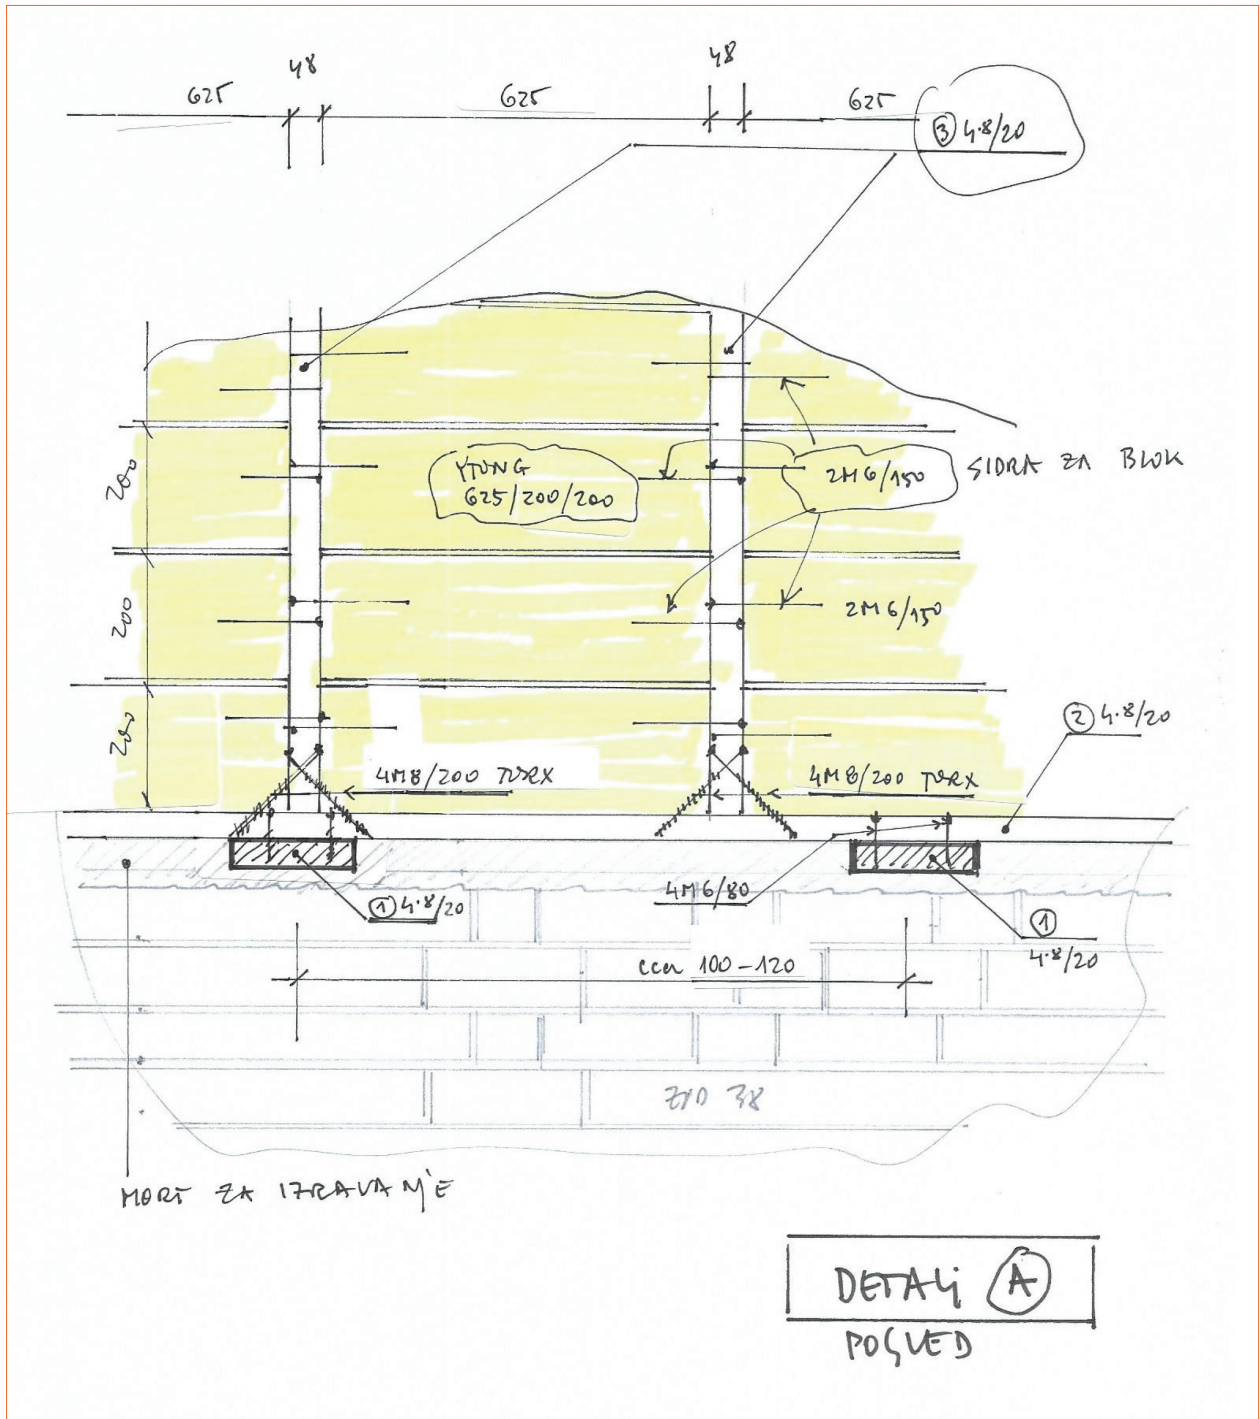 48
48
625
625
625
③ 4·8/20
YTONG
625/200/200
2M6/150
SIDRA ZA BLOK
200
200
2M6/150
200
② 4·8/20
4M8/200 TORX
4M8/200 TORX
① 4·8/20
4M6/80
①
4·8/20
cca 100-120
ZID 38
MORT ZA IZRAVANJE
DETALJ A
POGLED